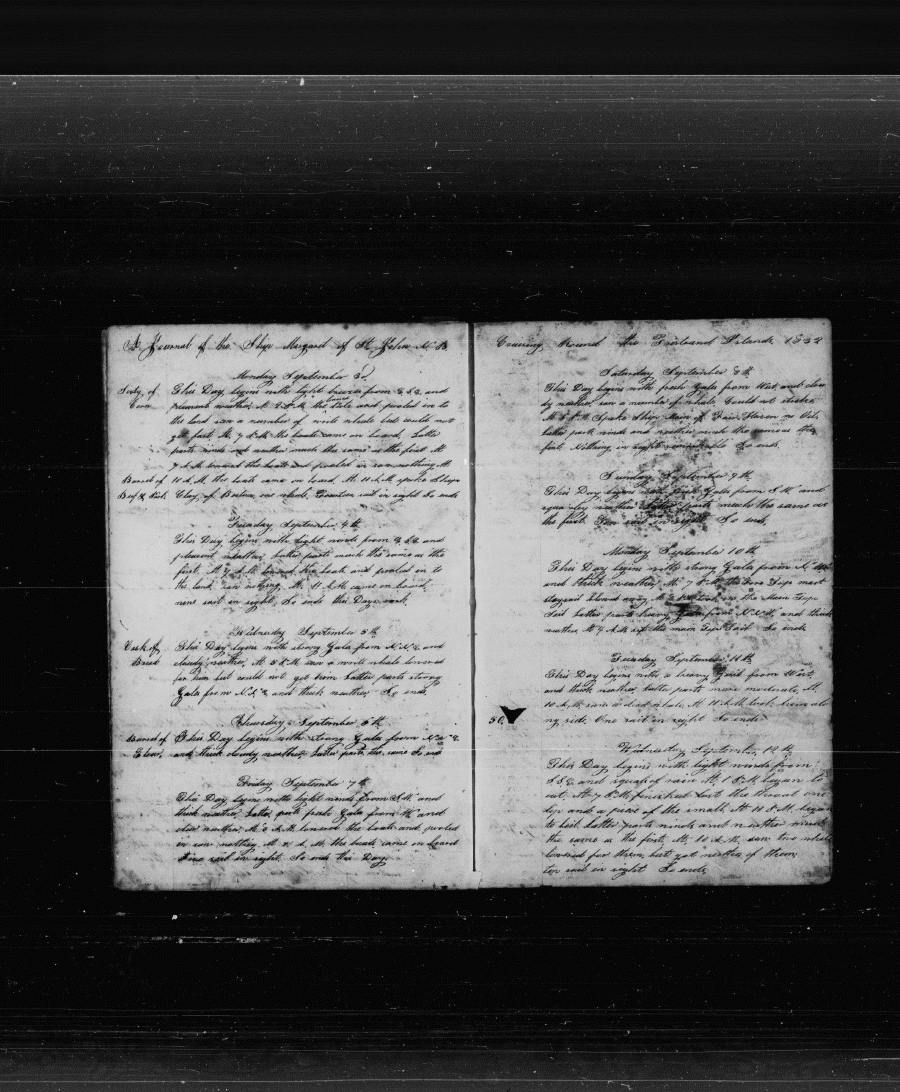 A Journal of the Ship Margaret of St John N. B.
Monday September 3d
This Day begins with light breezes from S.S.E. and
pleasant weather, At 2 P.M. the Boats and pulled in to
the land saw a number of whale but could not
get fast. At 7 P.M. the boats came on board, Latter
parts winds and weather much the same as the first At
7 A.M. lowerd the boats and pulled in saw nothing At
Barrel of 11 A.M. the came on board At 11 A.M. spoke Ships
Beef & one whale, sail in sight So ends
Tuesday September 4th
This Day begins with light winds from S.S.E. and
pleasant weather, Latter parts much the same as the
first. At 7 A.M. lowerd the boats and pulled in to
the land, saw nothing, At 11 A.M. came on board,
nine sail in sight, So ends this Days work.
Wednesday September 5th
Cask of This Day begins with strong Gales from N.N.E. and
Bread cloudy weather, At 5 P.M. saw a whale lowerd
for him but could not get him Latter parts strong
Gales from N.N.E. and thick weather, So ends,
Thursday September 6th
Barrel of This Day begins with strong Gales from
Flour, and thick cloudy weather, Latter parts the same So ends
Friday September 7th
This Day begins with light winds from S.W. and
thick weather, Latter parts fresh Gales from W. and
clear weather, At A.M. lowerd the boats and pulled
in saw nothing At A.M. the boats came on board
Nine sail in sight. So ends this Day.
Cruising Round the Islands 1832
Saturday September 8th
This Day begins with fresh Gales from West, and
weather, saw a number of whale, Could not strike
At 5 P.M. Spoke Ship of
latter parts winds and weather much the same as the
first. Nothing in sight So ends.
Sunday September 9th
This Day begins with fresh Gales from S.W. and
weather latter parts much the same as
the first, sail in sight So ends,
Monday September 10th
This Day begins with strong Gales from
and thick weather At 7 P.M. the fore Top mast
staysail blowed away, At the Main Top
Sail latter parts heavy Gales from N.N.W. and thick
weather At 4 A.M. set the main Top Sail So ends
Tuesday September 11th
This Day begins with a heavy Gale from West,
and thick weather, latter parts more moderate, At
10 A.M. saw a dead whale, At 11 A.M. took him along
50 ng side, One sail in sight So ends
Wednesday September 12th
This Day begins with light winds from
S.S.E. and squalls of rain At 1 P.M. began to
cut, At 7 P.M. finished lost the throat one
lip and a piece of the small, At 11 P.M. began
to boil latter parts winds and weather much
the same as the first, At 10 A.M. saw two whale
lowerd for them but got neither of them,
ten sail in sight So ends,